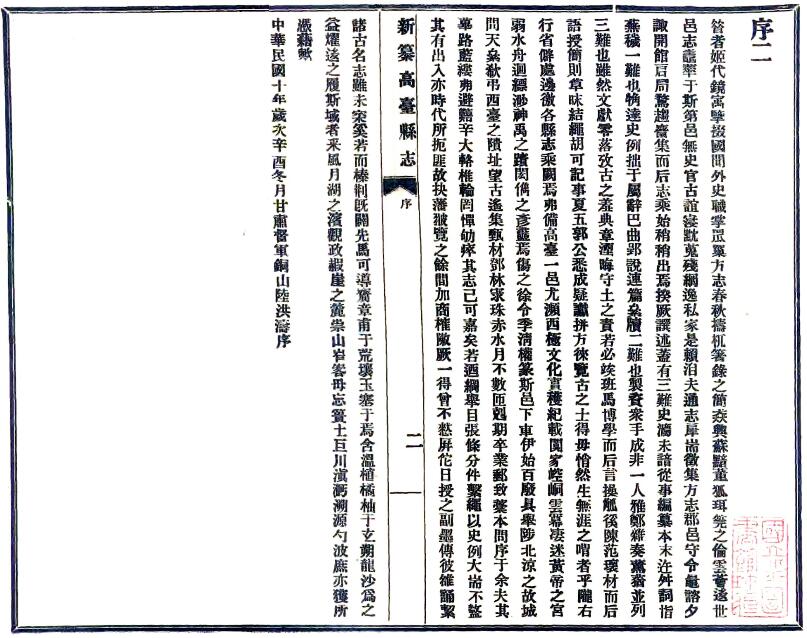 序二
昔者姬代鏡寓擎掇國閒外史職掌眾纂方志春秋檮杌箸錄之簡焱興蘇黯董狐珥筆之倫雲蒼遠世
邑志蘁舉于斯第邑無史官古誼寖默蒐殘網逸私家是賴洎夫通志厈耑徵集方志郡邑守令龕諮夕
諏開館启局騖趨麏集而后志乘始稍稍出焉揆厥譔述蓋有三難史灋未諳從事編纂本末迕舛詞指
蕪穢一難也觕達史例拙于屬辭巴曲郢說連篇絫牘二難也製賚眾手成非一人雅鄭雜奏薰蕕並列
三難也雖然文獻零落攷古之羞典章湮晦守土之責若必竢班馬博學而后言操觚徯陳范瓌材而后
語授簡則草昧結繩胡可記事夏五郭公悉成疑讞拼方徠覽古之士得毋愲然生無涯之喟者乎隴右
行省僻處邊徼各縣志乘闕焉弗備高臺一邑尤瀕西極文化寘穫紀載闃寥崆峒雲冪凄迷黃帝之宮
弱水舟迴縹渺神禹之蹟閎儁之彥蠚焉傷之徐令季清權篆斯邑下車伊始百廢具舉陟北涼之故城
問天喿欷弔西臺之隤址望古遙集甄材鄧林罙珠赤水月不數匝剋期卒業郵致槀本問序于余夫其
篳路藍縷弗避囏辛大輅椎輪罔憚劬瘁其志已可嘉矣若迺綱舉目張條分件繫繩以史例大耑不盭
其有出入亦時代所扼匪故抉藩披覽之餘間加商榷敶厥一得曾不憖屏佗日授之副墨傳彼雒誦絜
新纂高臺縣志
序
二
諸古名志雖未宷奚若而榛荆既闢先馬可導賫章甫于荒壤玉塞于焉含溫植橘柚于玄朔龍沙為之
益燿遠之履斯域者采風月湖之濱觀政嘏崖之麓崇山岧嶤毋忘簣土巨川滇沔溯源勺波庶亦獲所
憑藉歟
中華民國十年歲次辛酉冬月甘肅督軍銅山陸洪濤序